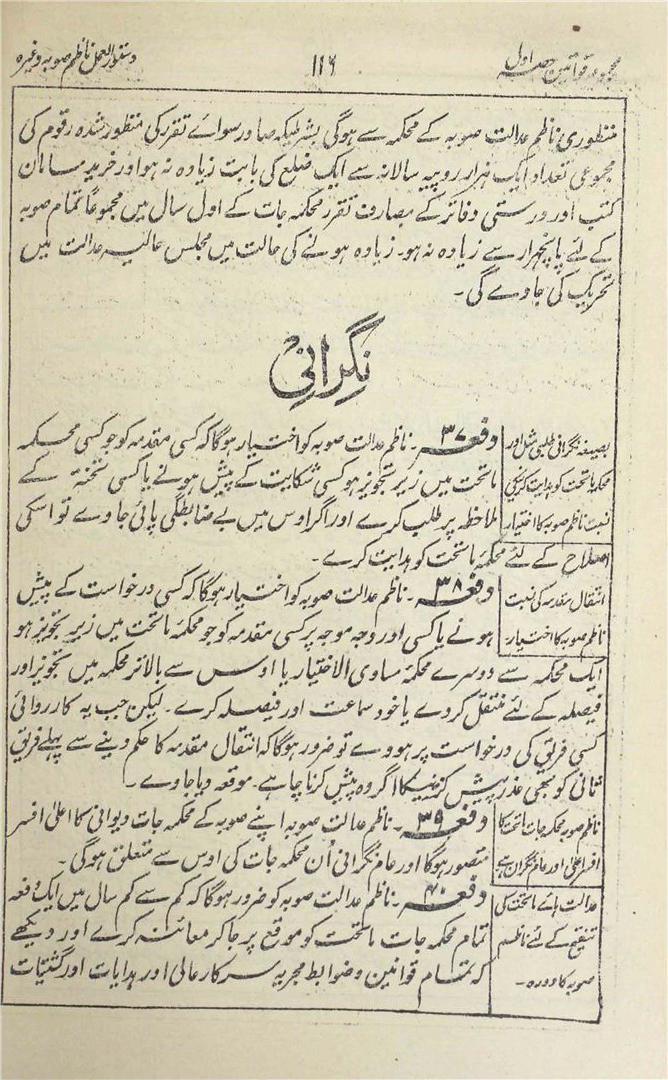 مجموعہ قوانین حصہ اول
۱۱۶
دستور العمل ناظم صوبہ وغیرہ
منظوری ناظم عدالت صوبہ کے محکمہ سے ہوگی بشرطیکہ صادر سوائے تقرر کی منظور شدہ رقوم کی
مجموعی تعداد ایک ہزار روپیہ سالانہ سے ایک ضلع کی بابت زیادہ نہ ہو اور خرید سامان
کتب اور درستی دفاتر کے مصارف تقرر محکمہ جات کے اول سال میں مجموعاً تمام صوبہ
کے لئے پانچہزار سے زیادہ نہ ہو۔ زیادہ ہونے کی حالت میں مجلس عالیہ عدالت میں
تحریک کی جاوے گی۔
نگرانی
بصیغہ نگرانی طلبی مثل اور
محکمہ ماتحت کو ہدایت کرنیکی
نسبت ناظم صوبہ کا اختیار
دفعہ ۳۷۔ ناظم عدالت صوبہ کو اختیار ہوگا کہ کسی مقدمہ کو جو کسی محکمہ
ماتحت میں زیر تجویز ہو کسی شکایت کے پیش ہونے یا کسی تختہ کے
ملاحظہ پر طلب کرے اور اگر اوس میں بے ضابطگی پائی جاوے تو اسکی
اصلاح کے لئے محکمہ ماتحت کو ہدایت کرے۔
انتقال مقدمہ کی نسبت
ناظم صوبہ کا اختیار۔
دفعہ ۳۸۔ ناظم عدالت صوبہ کو اختیار ہوگا کہ کسی درخواست کے پیش
ہونے یا کسی اور وجہ موجہ پر کسی مقدمہ کو جو محکمہ ماتحت میں زیر تجویز ہو
ایک محکمہ سے دوسرے محکمہ مساوی الاختیار یا اوس سے بالاتر محکمہ میں تجویز اور
فیصلہ کے لئے منتقل کردے یا خود سماعت اور فیصلہ کرے۔ لیکن جب یہ کارروائی
کسی فریق کی درخواست پر ہووے تو ضرور ہوگا کہ انتقال مقدمہ کا حکم دینے سے پہلے فریق
ثانی کو بھی عذر پیش کرنیکا اگر وہ پیش کرنا چاہے۔ موقعہ دیا جاوے۔
ناظم صوبہ محکمہ جات ماتحت کا
افسر اعلیٰ اور عام نگران ہے
دفعہ ۳۹۔ ناظم عدالت صوبہ اپنے صوبہ کے محکمہ جات دیوانی کا اعلیٰ افسر
متصور ہوگا اور عام نگرانی اُن محکمہ جات کی اوس سے متعلق ہوگی۔
عدالت ہائے ماتحت کی
تنقیح کے لئے ناظم
صوبہ کا دورہ۔
دفعہ ۴۰۔ ناظم عدالت صوبہ کو ضرور ہوگا کہ کم سے کم سال میں ایک دفعہ
تمام محکمہ جات ماتحت کو موقع پر جاکر معائنہ کرے اور دیکھے
کہ تمام قوانین و ضوابط مجریہ سرکار عالی اور ہدایات اور گشتیات